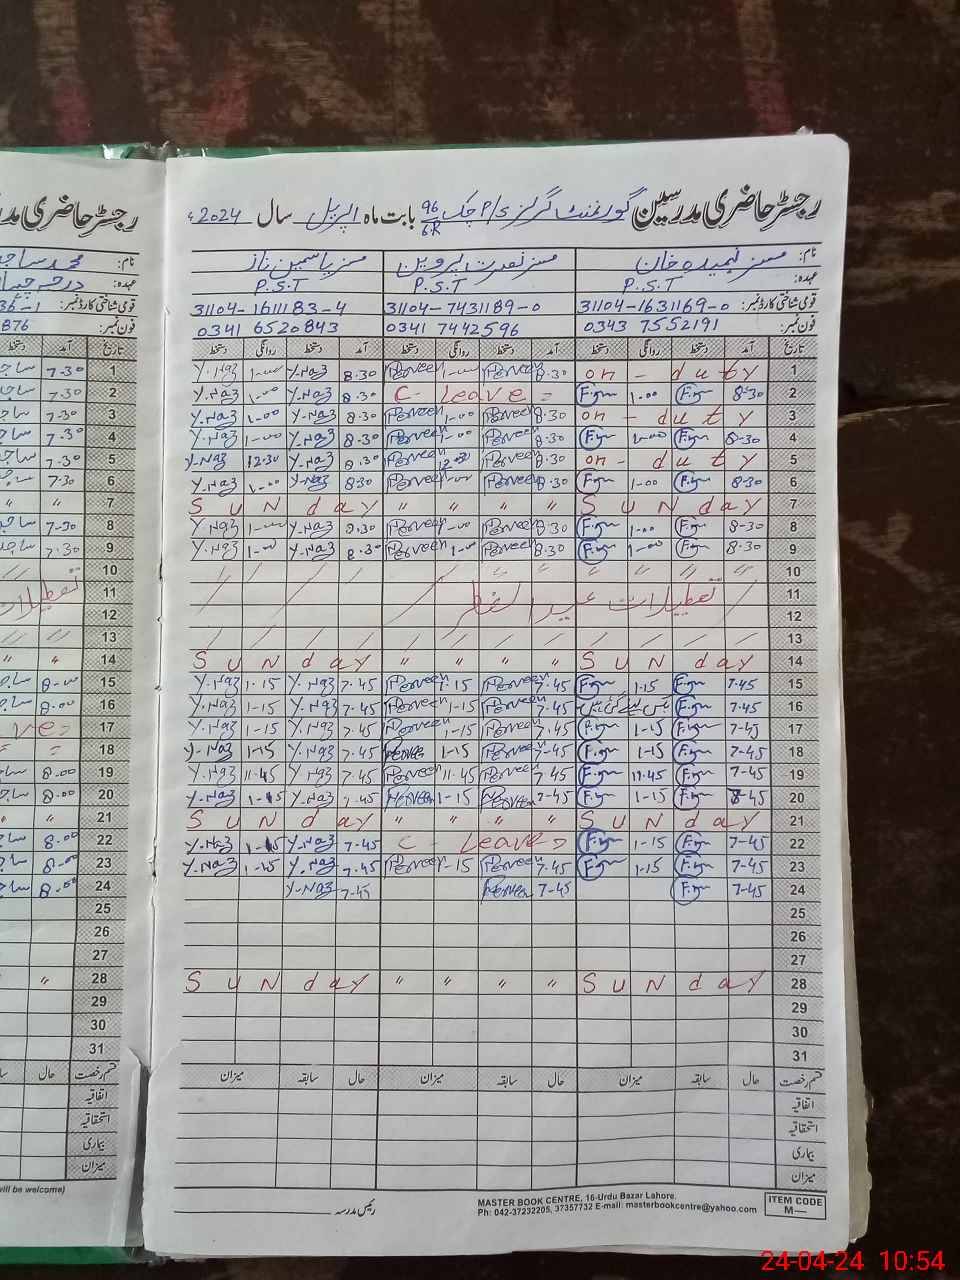 رجسٹر حاضری مدرسین گورنمنٹ گرلز P/S چک 96/6R بابت ماہ اپریل سال 2024ء
نام: مسز فہمیدہ خان مسز نصرت پروین مسز یاسمین ناز
عہدہ: P.S.T P.S.T P.S.T
قومی شناختی کارڈ نمبر: 31104-1631169-0 31104-7431189-0 31104-1611183-4
فون نمبر: 0343 7552191 0341 7442596 0341 6520843
تاریخ آمد دستخط روانگی دستخط آمد دستخط روانگی دستخط آمد دستخط روانگی دستخط
1 on - duty 8.30 Parveen 1-00 Parveen 8.30 Y.Naz 1-00 Y.Naz
2 8-30 1-00 C- Leave = 8.30 Y.Naz 1-00 Y.Naz
3 on - duty 8.30 Parveen 1-00 Parveen 8.30 Y.Naz 1-00 Y.Naz
4 8-30 1-00 8.30 Parveen 1-00 Parveen 8.30 Y.Naz 1-00 Y.Naz
5 on - duty 8.30 Parveen 12-30 Parveen 8.30 Y.Naz 12.30 Y.Naz
6 8-30 1-00 8.30 Parveen 1-00 Parveen 8.30 Y.Naz 1-00 Y.Naz
7 Sunday " " " " Sunday
8 8-30 1-00 8.30 Parveen 1-00 Parveen 8.30 Y.Naz 1-00 Y.Naz
9 8-30 1-00 8.30 Parveen 1-00 Parveen 8.30 Y.Naz 1-00 Y.Naz
10
11 تعطیلات عید الفطر
12
13
14 Sunday " " " " Sunday
15 7-45 1-15 7.45 Parveen 1-15 Parveen 7-45 Y.Naz 1-15 Y.Naz
16 7-45 7.45 Parveen 1-15 Parveen 7.45 Y.Naz 1-15 Y.Naz
17 7-45 1-15 7.45 Parveen 1-15 Parveen 7.45 Y.Naz 1-15 Y.Naz
18 7-45 1-15 7-45 Parveen 1-15 Parveen 7.45 Y.Naz 1-15 Y.Naz
19 7-45 11.45 7.45 Parveen 11.45 Parveen 7.45 Y.Naz 11.45 Y.Naz
20 7-45 1-15 7-45 Parveen 1-15 Parveen 7.45 Y.Naz 1-15 Y.Naz
21 Sunday " " " " Sunday
22 7-45 1-15 C- Leave = 7-45 Y.Naz 1-15 Y.Naz
23 7-45 1-15 7.45 Parveen 1-15 Parveen 7.45 Y.Naz 1-15 Y.Naz
24 7-45 7-45 Parveen 7-45 Y-Naz
25
26
27
28 Sunday " " " " Sunday
29
30
31
قسم رخصت حال سابقہ میزان حال سابقہ میزان حال سابقہ میزان
اتفاقیہ
استحقاقیہ
بیماری
میزان
رئیس مدرسہ
MASTER BOOK CENTRE, 16-Urdu Bazar Lahore.
Ph: 042-37232205, 37357732 E-mail: masterbookcentre@yahoo.com
ITEM CODE
M—
رجسٹر حاضری
نام: محمد ساجد
عہدہ:
قومی شناختی کارڈ نمبر:
فون نمبر: 876
تاریخ آمد دستخط
1 7.30
2 7.30
3 7.30
4 7.30
5 7.30
6 7.30
7 " "
8 7-30
9 7.30
10
11 تعطیلات
12
13
14 " "
15 8-00
16 8.00
17
18
19 8.00
20 8.00
21 "
22 8.00
23 8.00
24 8.00
25
26
27
28 "
29
30
31
قسم رخصت حال
اتفاقیہ
استحقاقیہ
بیماری
میزان
will be welcome)
24-04-24 10:54